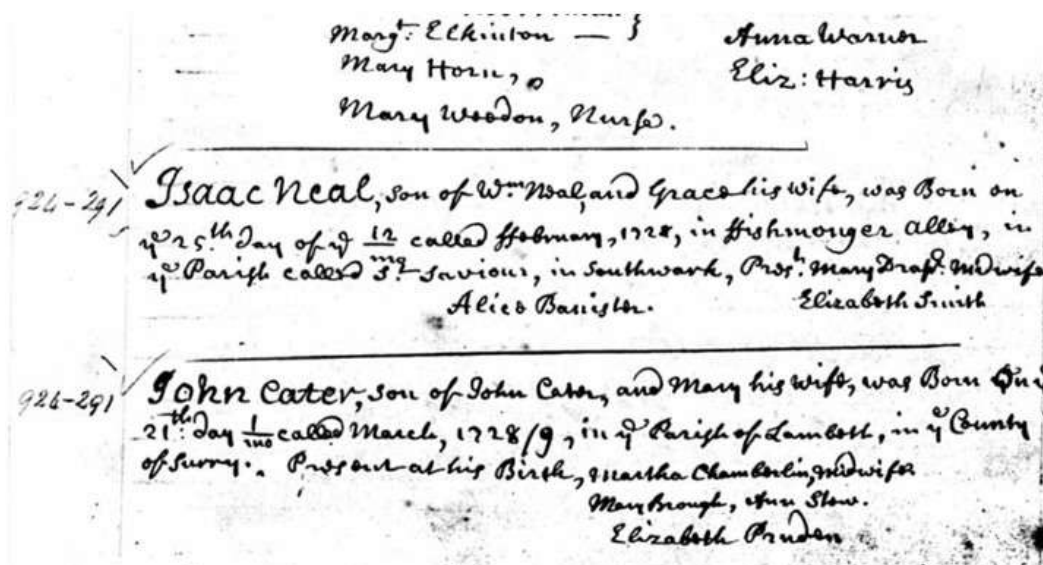 Margt: Elkinton — } Anna Warner
Mary Horn, Eliz: Harris
Mary Weedon, Nurse.
924-291 Isaac Neal, son of Wm Neal, and Grace his wife, was Born on
ye 25.th Day of ye 12/mo called ffebruary, 1728, in ffishmonger Alley, in
ye Parish called St Saviour, in Southwark, Presth. Mary Drapr. Midwife
Alice Banister. Elizabeth Smith
924-291 John Cater, son of John Cater, and Mary his wife, was Born On
21th: Day 1/mo called March, 1728/9, in ye Parish of Lambeth, in ye County
of Surry. Present at his Birth, Martha Chamberlin, Midwife
Mary Brough, Ann Stow.
Elizabeth Pruden